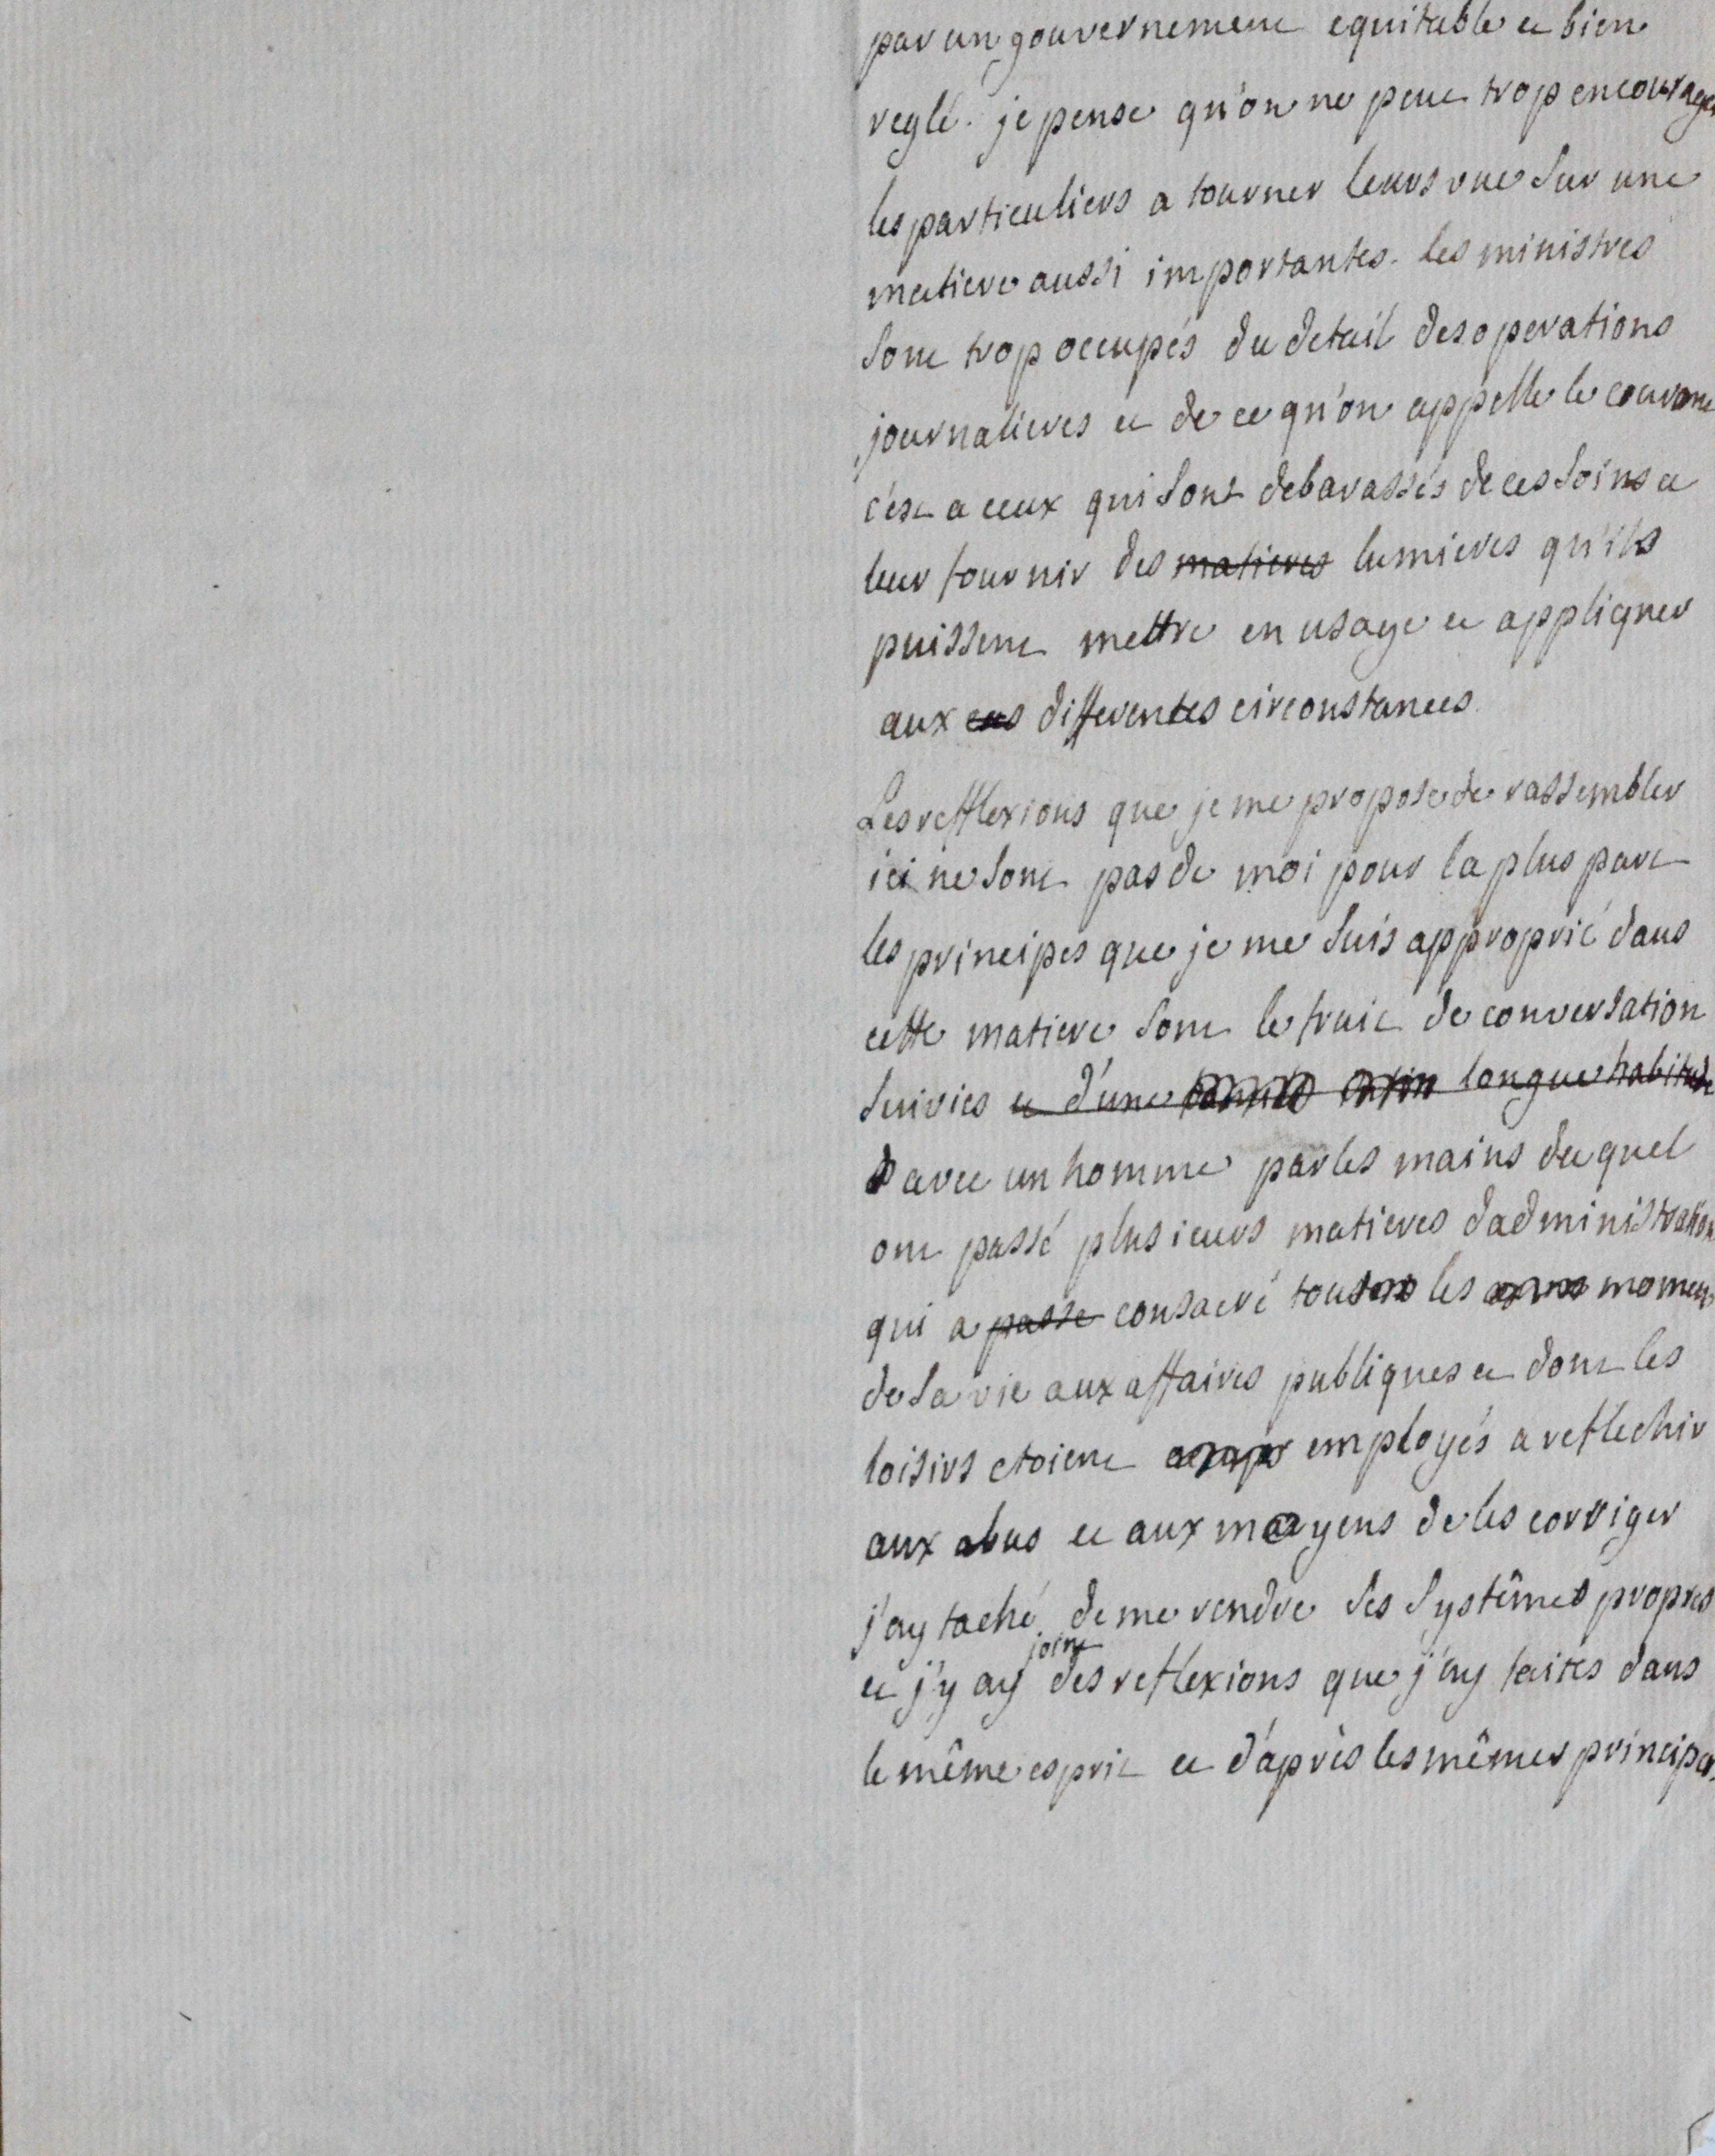 par un gouvernement equitable et bien
reglé. je pense qu'on ne peut trop encourager
les particuliers a tourner leurs vue sur une
matiere aussi importantes. les ministres
sont trop occupés du detail des operations
journalieres et de ce qu'on appelle le courant
c'est a ceux qui sont debarassés de ces soins a
leur fournir des matieres lumieres qu'ils
puissent mettre en usage et appliquer
aux cas differentes circonstances.
Les refflexions que je me propose de rassembler
ici ne sont pas de moi pour la plus part
les principes que je me suis approprié dans
cette matiere sont le fruit de conversation
suivies et d'une longue habitude
avec un homme par les mains duquel
ont passé plusieurs matieres d'administration
qui a passé consacré tous les momens
de sa vie aux affaires publiques et dont les
loisirs etoient employés a reflechir
aux abus et aux moyens de les corriger
j'ay taché de me rendre ses systêmes propres
et j'y ay joint des reflexions que j'ay faites dans
le même esprit et d'après les mêmes principes.